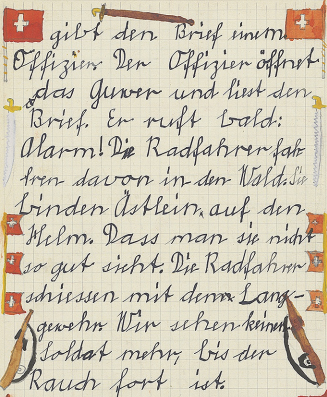 gibt den Brief einem
Offizier. Der Offizier öffnet
das Guwer und liest den
Brief. Er ruft bald:
Alarm! Die Radfahrer fah-
ren davon in den Wald. Sie
binden Ästlein auf den
Helm. Dass man sie nicht
so gut sieht. Die Radfahrer
schiessen mit dem Lang-
gewehr. Wir sehen keinen
Soldat mehr, bis der
Rauch fort ist.